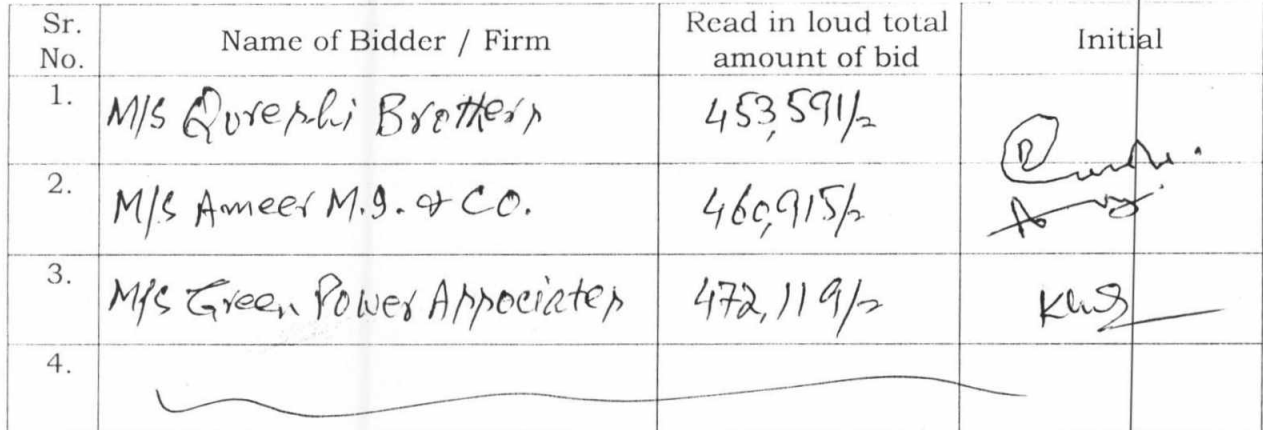 Sr. No. Name of Bidder / Firm Read in loud total amount of bid Initial
1. M/S Qureshi Brothers 453,591/=
2. M/S Ameer M.I. & CO. 460,915/=
3. M/S Green Power Associates 472,119/=
4.